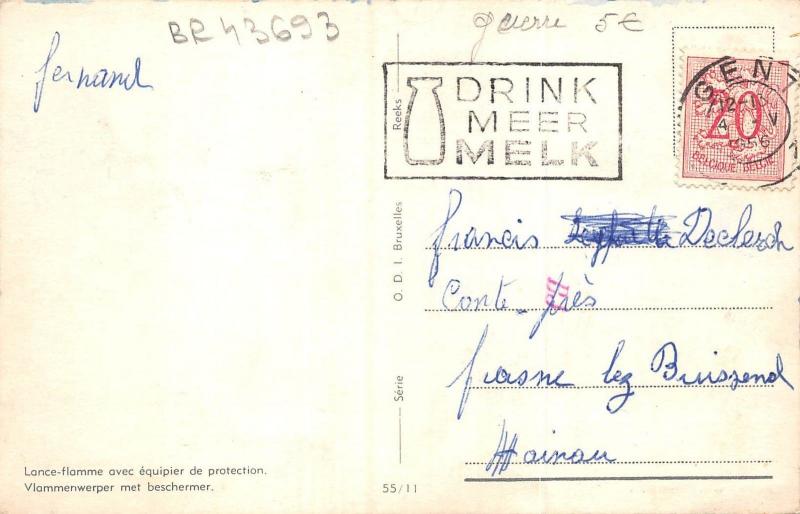 BR43693
guerre 5€
fernand
DRINK
MEER
MELK
GENT
12-13
4 V
1956
20
BELGIQUE-BELGIE
Reeks
O. D. I. Bruxelles
Série
francis Declerch
Conte-près
frasne lez Buissend
Hainau
Lance-flamme avec équipier de protection.
Vlammenwerper met beschermer.
55/11